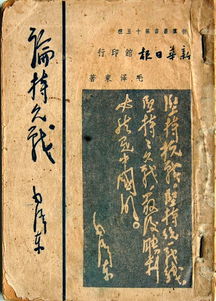 新群叢書第十五種
新華日報館印行
毛澤東著
論持久戰
毛澤東
堅持抗戰，堅持統一戰線，
堅持持久戰，最後勝利
必然是中國的。
毛澤東